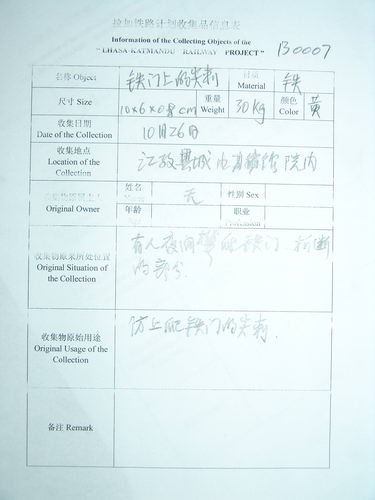 拉加铁路计划收集品信息表
Information of the Collecting Objects of the
"LHASA-KATMANDU RAILWAY PROJECT" B0007
名称 Object 铁门上的尖刺 材质 Material 铁
尺寸 Size 10×6×0.8cm 重量 Weight 30Kg 颜色 Color 黄
收集日期 Date of the Collection 10月26日
收集地点 Location of the Collection 江孜县城内 院内
Original Owner 姓名 无 性别 Sex
年龄 职业
收集物原来所处位置 Original Situation of the Collection 有人夜间 铁门 折断
的部分.
收集物原始用途 Original Usage of the Collection 防止爬铁门的尖刺.
备注 Remark